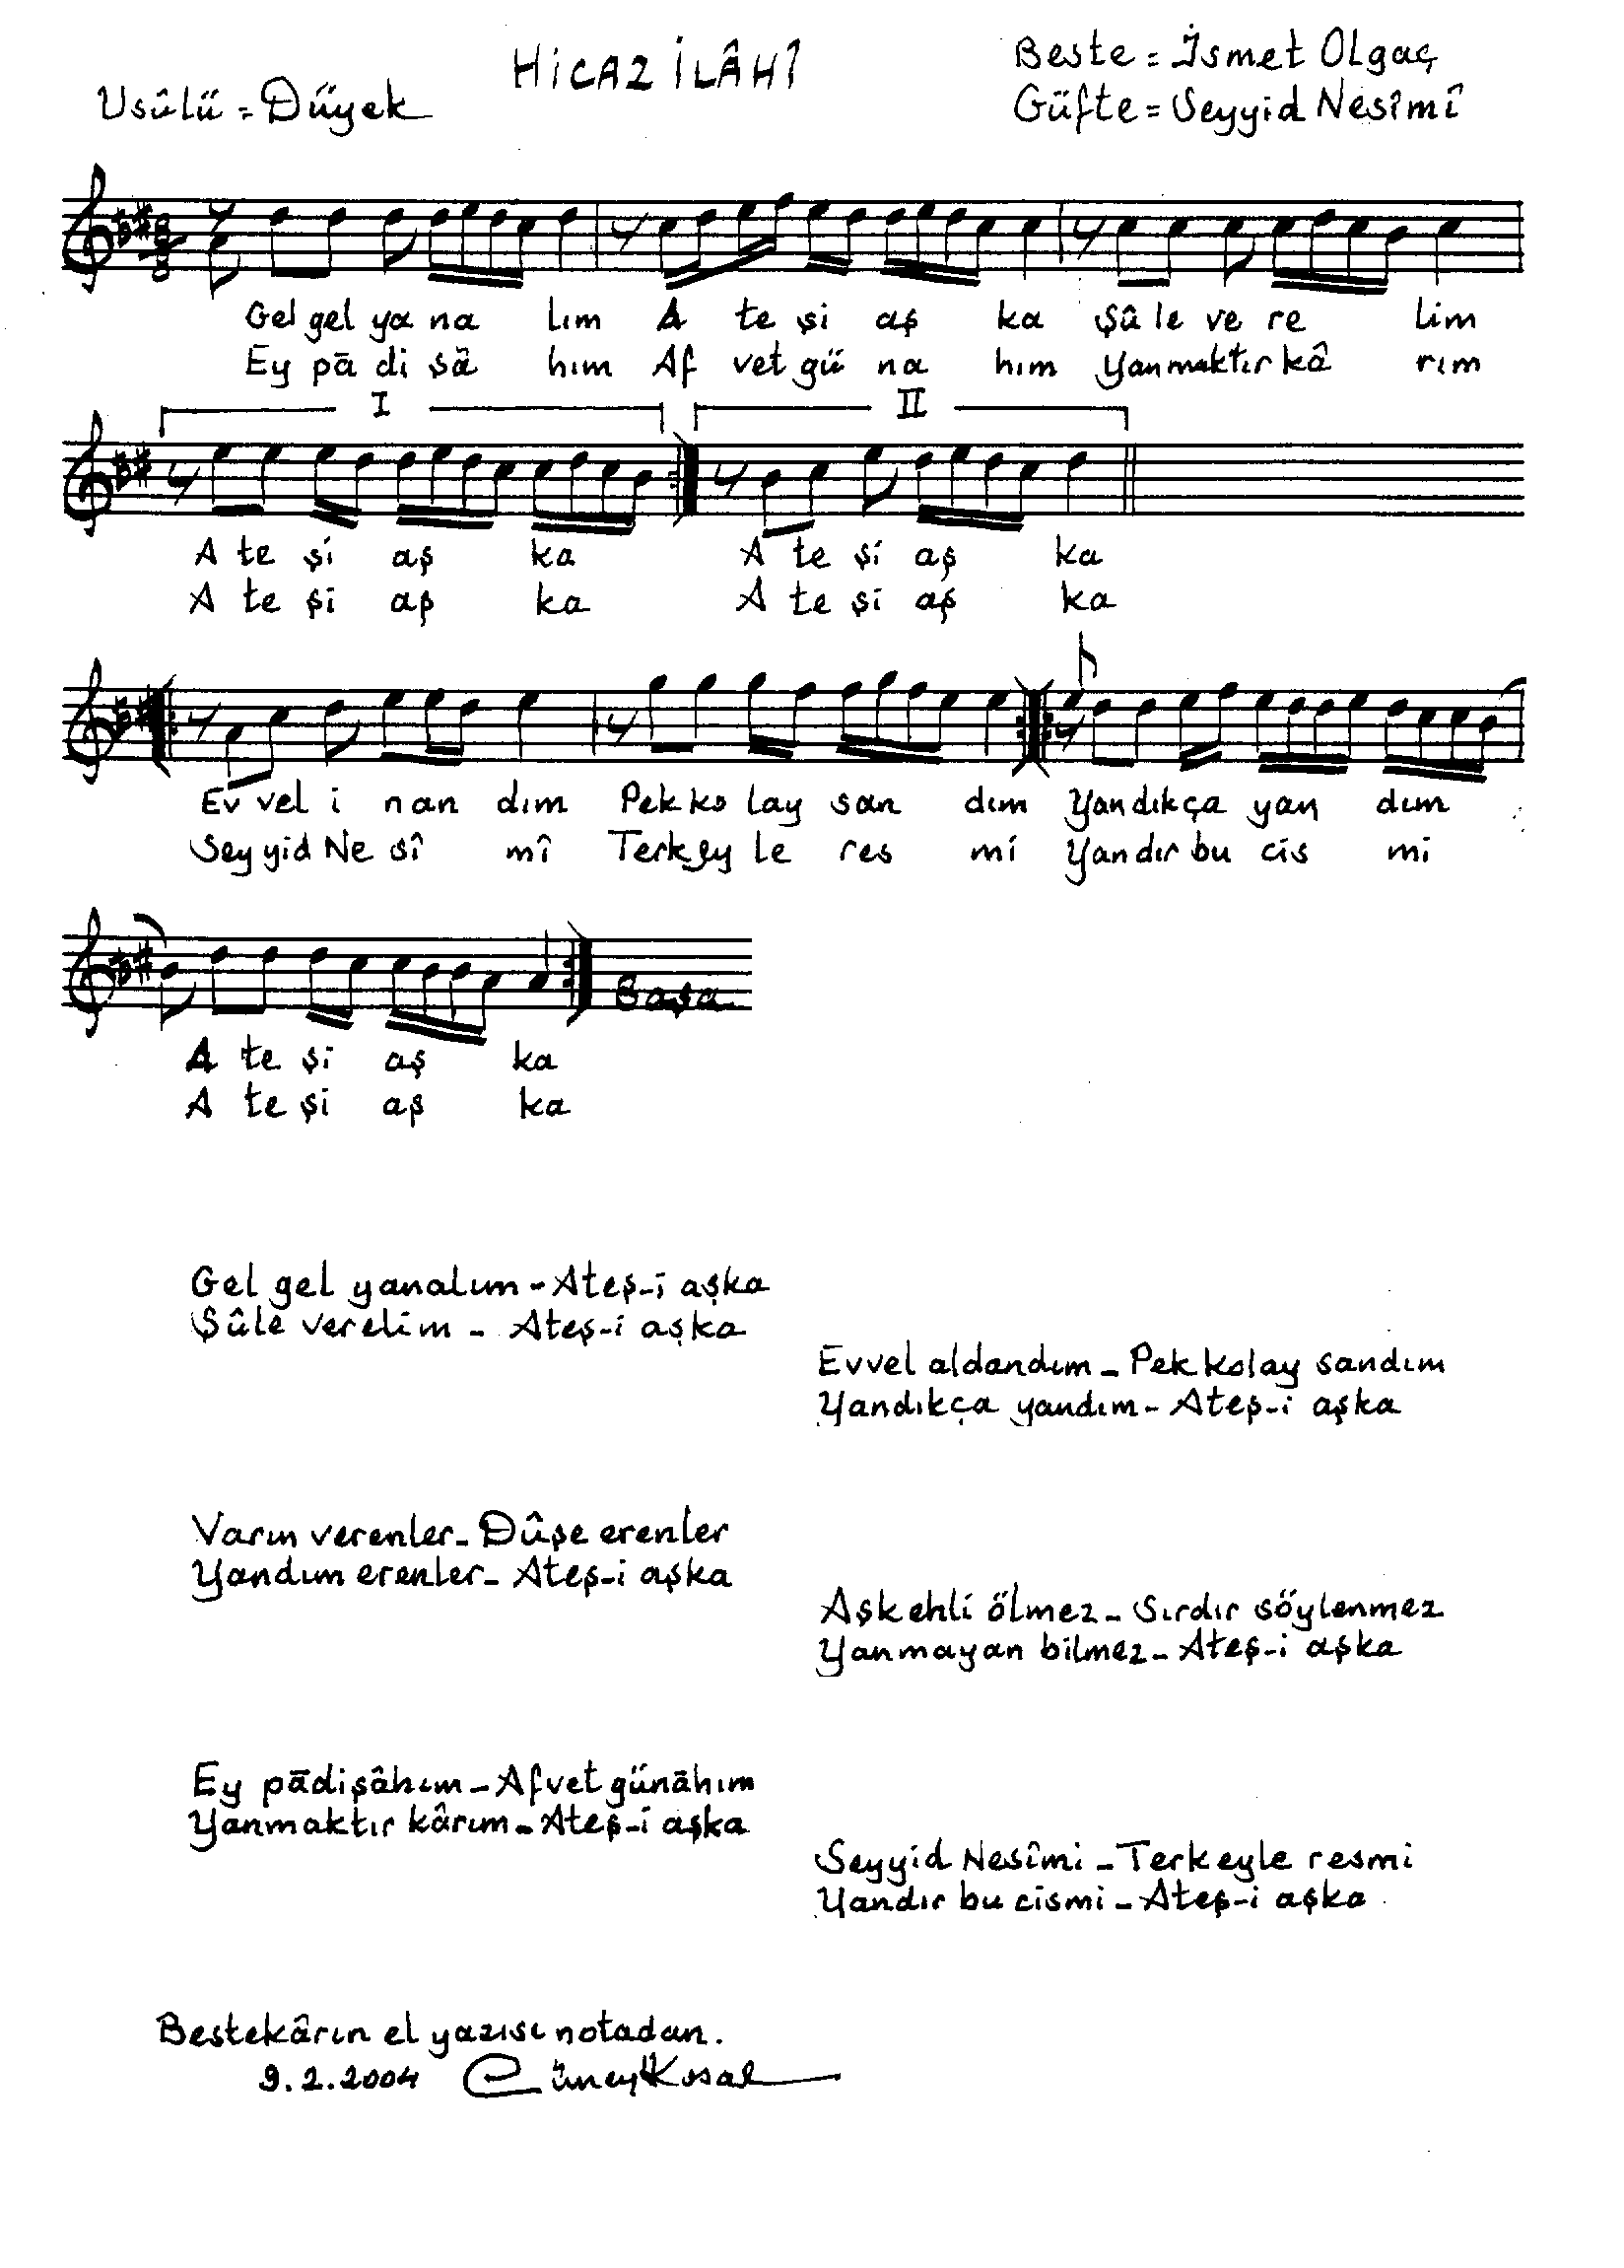 HİCAZ İLÂHÎ
Beste = İsmet Olgaç
Usûlü = Düyek
Güfte = Seyyid Nesîmî
Gel gel ya na lım A te şi aş ka Şû le ve re lim
Ey pā di şâ hım Af vet gü na hım Yanmaktır kâ rım
I II
A te şi aş ka A te şi aş ka
A te şi aş ka A te şi aş ka
Ev vel i nan dım Pek ko lay san dım Yandıkça yan dım
Sey yid Ne sî mî Terkey le res mi Yandır bu cis mi
Başa
A te şi aş ka
A te şi aş ka
Gel gel yanalım - Ateş-i aşka
Şûle verelim - Ateş-i aşka
Evvel aldandım - Pek kolay sandım
Yandıkça yandım - Ateş-i aşka
Varın verenler - Dûşe erenler
Yandım erenler - Ateş-i aşka
Aşk ehli ölmez - Sırdır söylenmez
Yanmayan bilmez - Ateş-i aşka
Ey pādişâhım - Afvet günāhım
Yanmaktır kârım - Ateş-i aşka
Seyyid Nesîmi - Terkeyle resmi
Yandır bu cismi - Ateş-i aşka
Bestekârın el yazısı notadan.
9.2.2004 Cüneyt Kosal